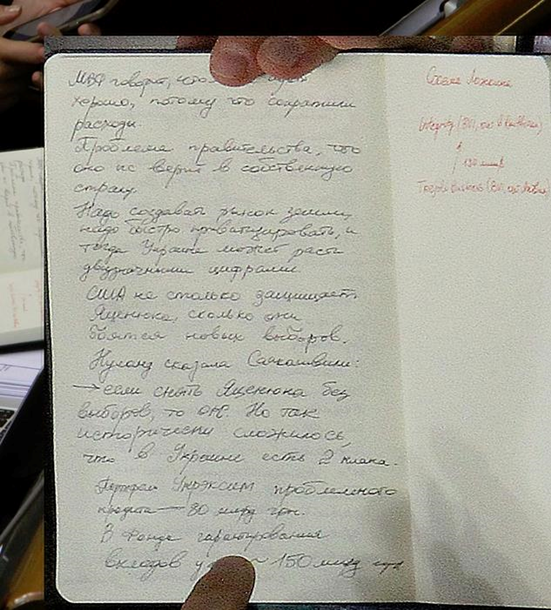 МВФ говорит, что
хорошо, потому что сократили
расходы.
Проблема правительства, что
оно не верит в собственную
страну.
Надо создавать рынок земли,
надо быстро приватизировать, и
тогда Украина может расти
двузначными цифрами.
США не столько защищает
Яценюка, сколько они
боятся новых выборов.
Нуланд сказала Саакашвили:
→ если снять Яценюка без
выборов, то ОК. Но так
исторически сложилось,
что в Украине есть 2 клана.
Портфель Укрэксим проблемного
кредита — 80 млрд грн.
В Фонде гарантирования
вкладов ~ 150 млрд грн
Схема
120